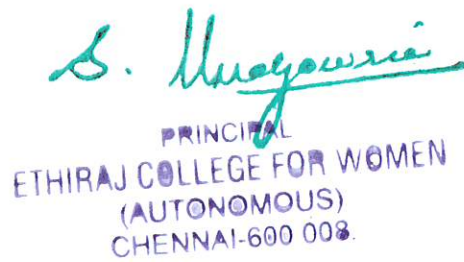 S. Umagowrie
PRINCIPAL
ETHIRAJ COLLEGE FOR WOMEN
(AUTONOMOUS)
CHENNAI-600 008.